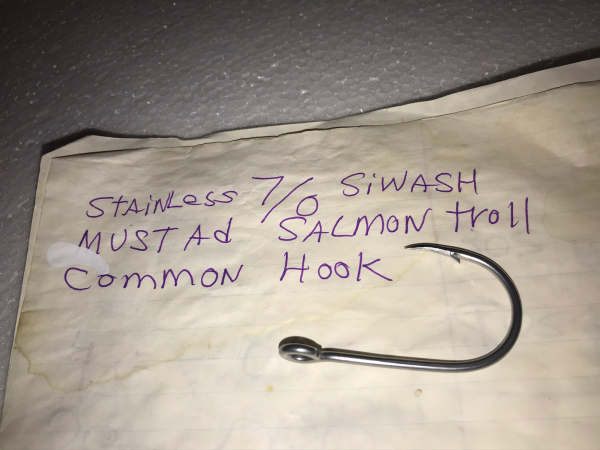 STAiNLess 7/0 SiWASH
MUSTAd SALMON troll
Common Hook